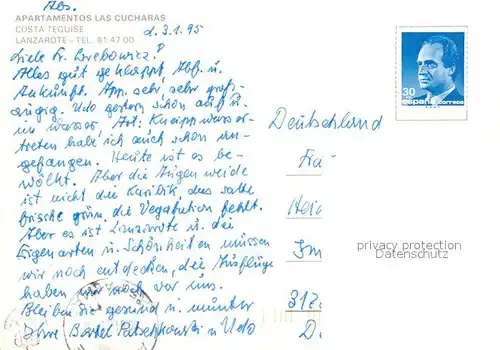 Abs.
APARTAMENTOS LAS CUCHARAS
COSTA TEGUISE
LANZAROTE - TEL. 81 47 00
d. 3.1.95
Liebe Fr.
Alles gut geklappt, Abf. u.
Ankunft. App. sehr, sehr groß-
zügig. Udo gestern schon auf u.
im Wasser. Art: Kneipp wasser-
treten hab' ich auch schon an-
gefangen. Heute ist es be-
wölkt. Aber die Augen weide
ist nicht die Karibik, das satte
frische grün, die Vegatution fehlt.
Aber es ist Lanzarote u. die
Eigenarten u. Schönheiten müssen
wir noch entdecken, die Ausflüge
haben wir noch vor uns.
Bleiben Sie gesund u. munter
Ihre u Udo
30
españa correos
Deutschland
Fra
Hei
Im
312
D
privacy protection
Datenschutz